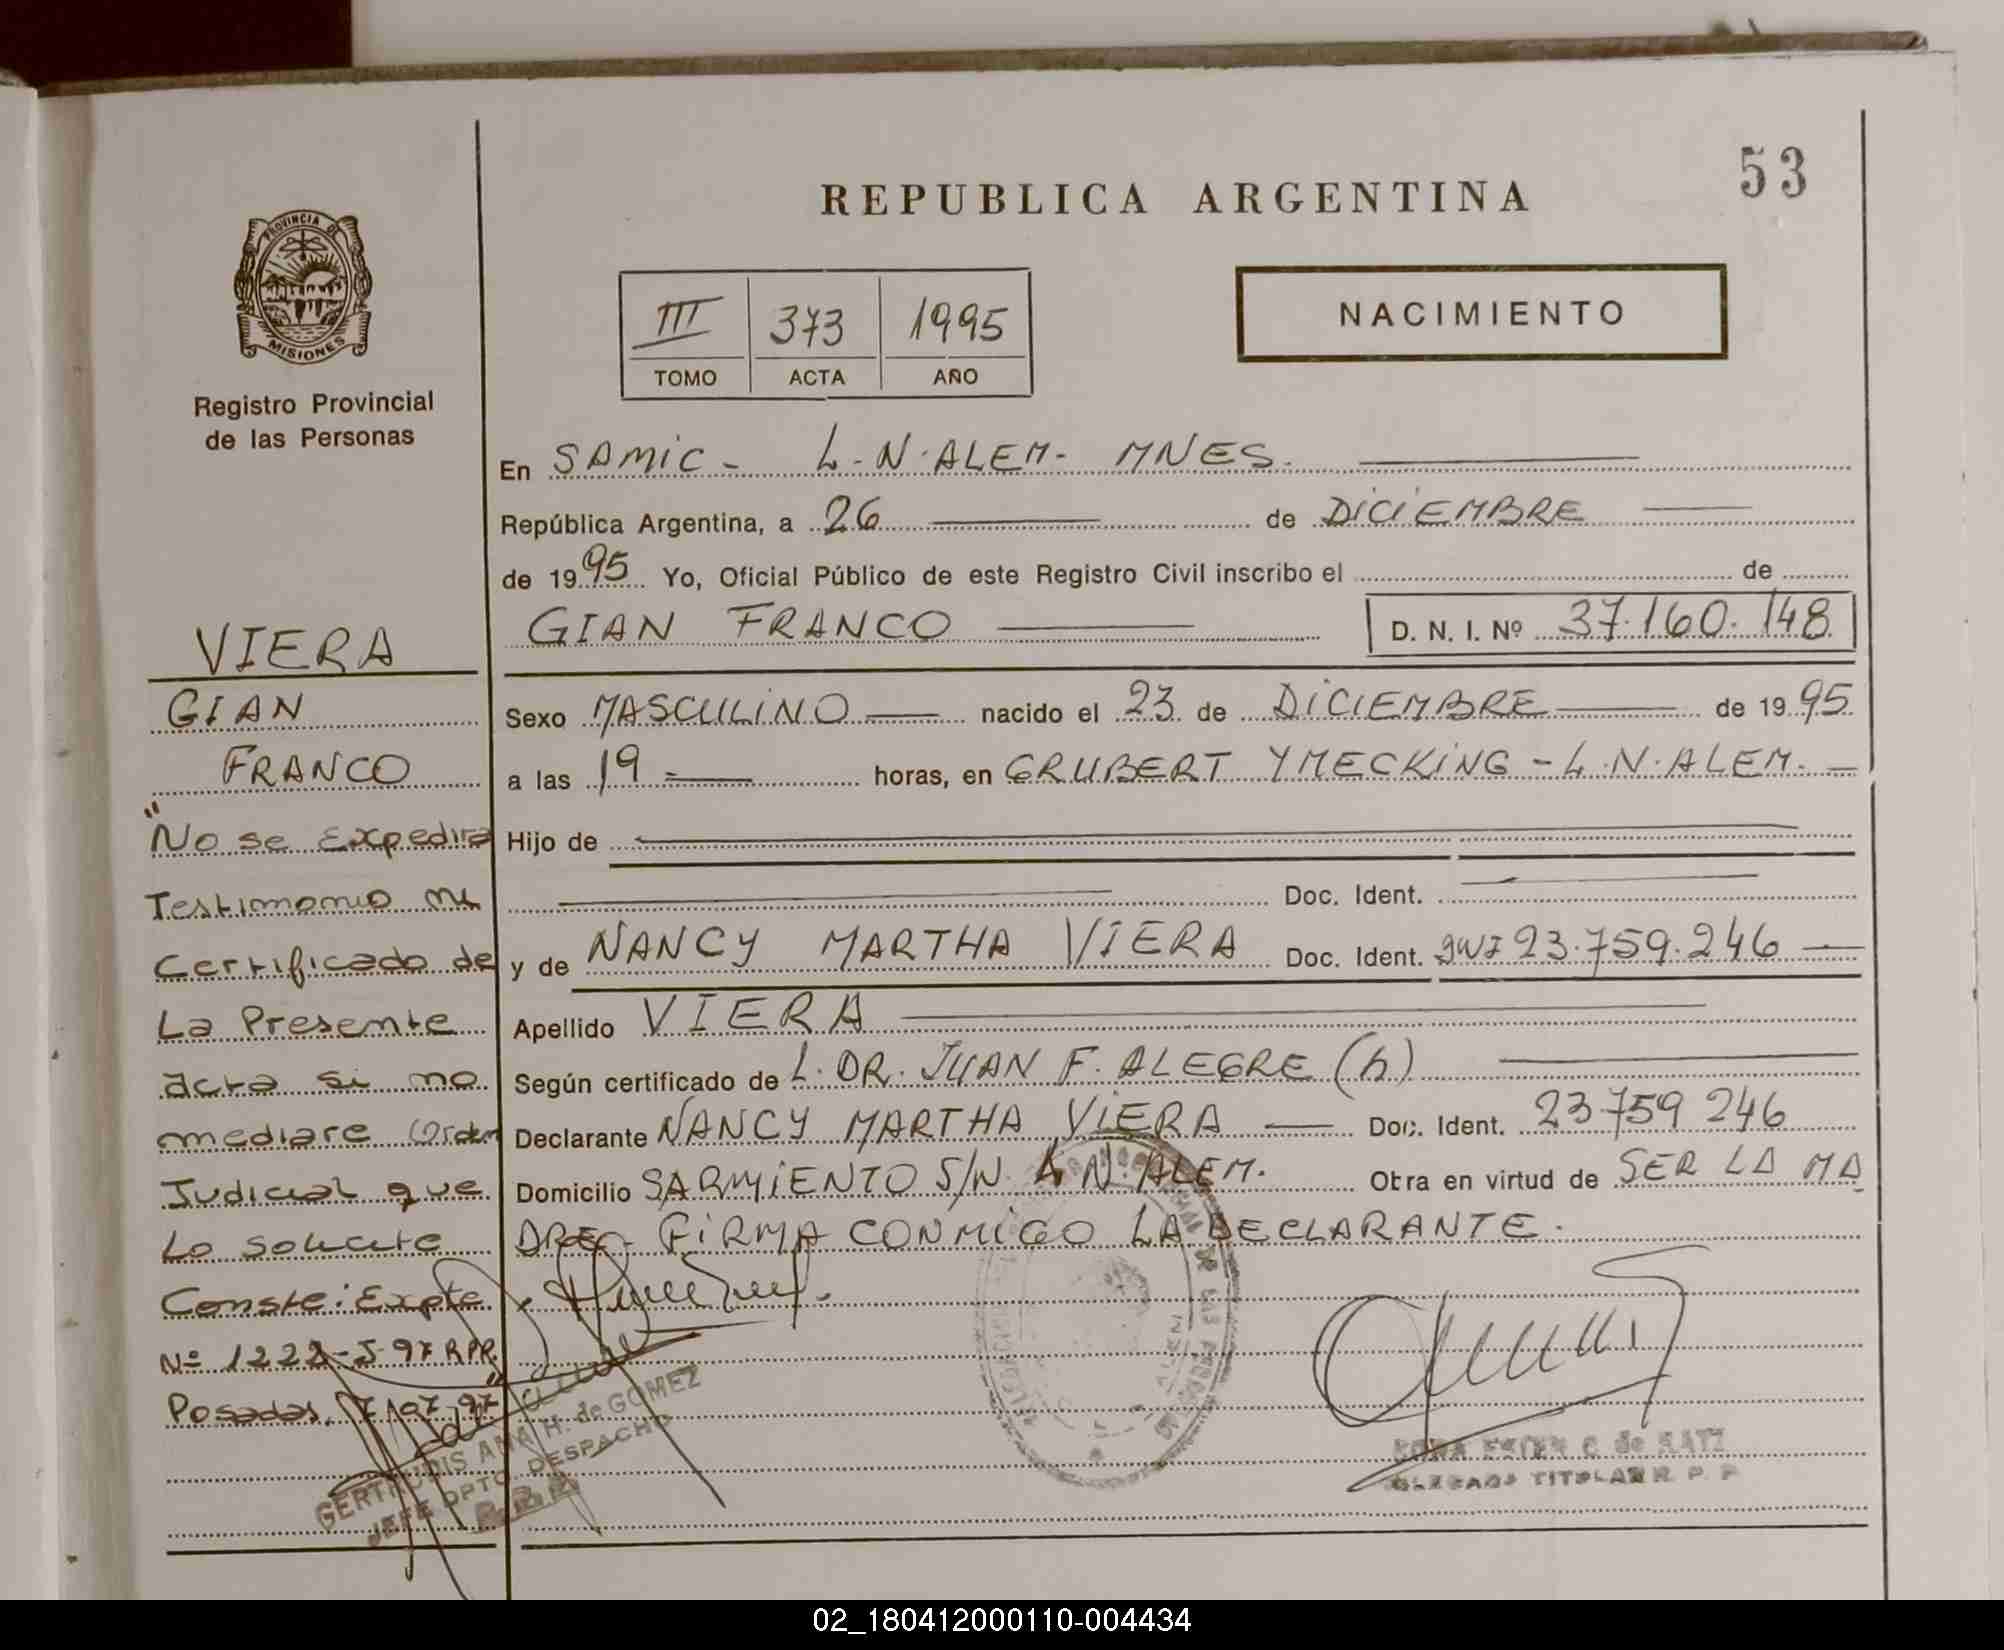 53
REPUBLICA ARGENTINA
PROVINCIA DE
MISIONES
Registro Provincial
de las Personas
III 373 1995
TOMO ACTA AÑO
NACIMIENTO
En SAMIC - L.N.ALEM- MNES.
República Argentina, a 26 de DICIEMBRE
de 1995 Yo, Oficial Público de este Registro Civil inscribo el de
GIAN FRANCO D. N. I. Nº 37.160.148
Sexo MASCULINO nacido el 23 de DICIEMBRE de 1995
a las 19 horas, en GRUBERT Y MECKING - L.N.ALEM.
Hijo de
Doc. Ident.
y de NANCY MARTHA VIERA Doc. Ident. DNI 23.759.246
Apellido VIERA
Según certificado de L. DR. JUAN F. ALEGRE (h)
Declarante NANCY MARTHA VIERA Doc. Ident. 23759246
Domicilio SARMIENTO S/N. L.N.ALEM. Otra en virtud de SER LA MA
DRE - FIRMA CONMIGO LA DECLARANTE.
VIERA
GIAN
FRANCO
"No se Expedira
Testimonio ni
Certificado de
La Presente
acta si no
mediare Orden
Judicial que
Lo solicite
Conste: Expte
Nº 1222-J-97 RPP.
Posadas, 7/07/97"
GERTRUDIS ANA H. de GOMEZ
JEFE DPTO. DESPACHO
R.P.P.
C. de KATZ
DELEGADO TITULAR R. P. P.
02_180412000110-004434